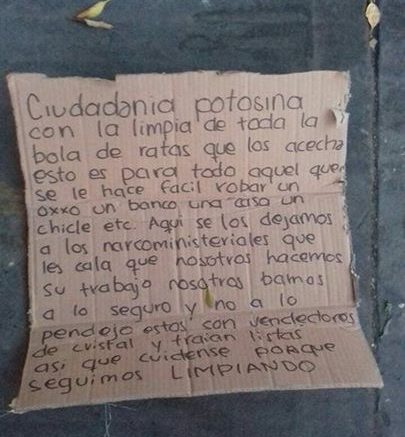 Ciudadania potosina
con la limpia de toda la
bola de ratas que los acecha
esto es para todo aquel que
se le hace facil robar un
oxxo un banco una casa un
chicle etc. Aqui se los dejamos
a los narcoministeriales que
les cala que nosotros hacemos
su trabajo nosotros bamos
a lo seguro y no a lo
pendejo estos son vendedores
de cristal y traian listas
asi que cuidense PORQUE
seguimos LIMPIANDO